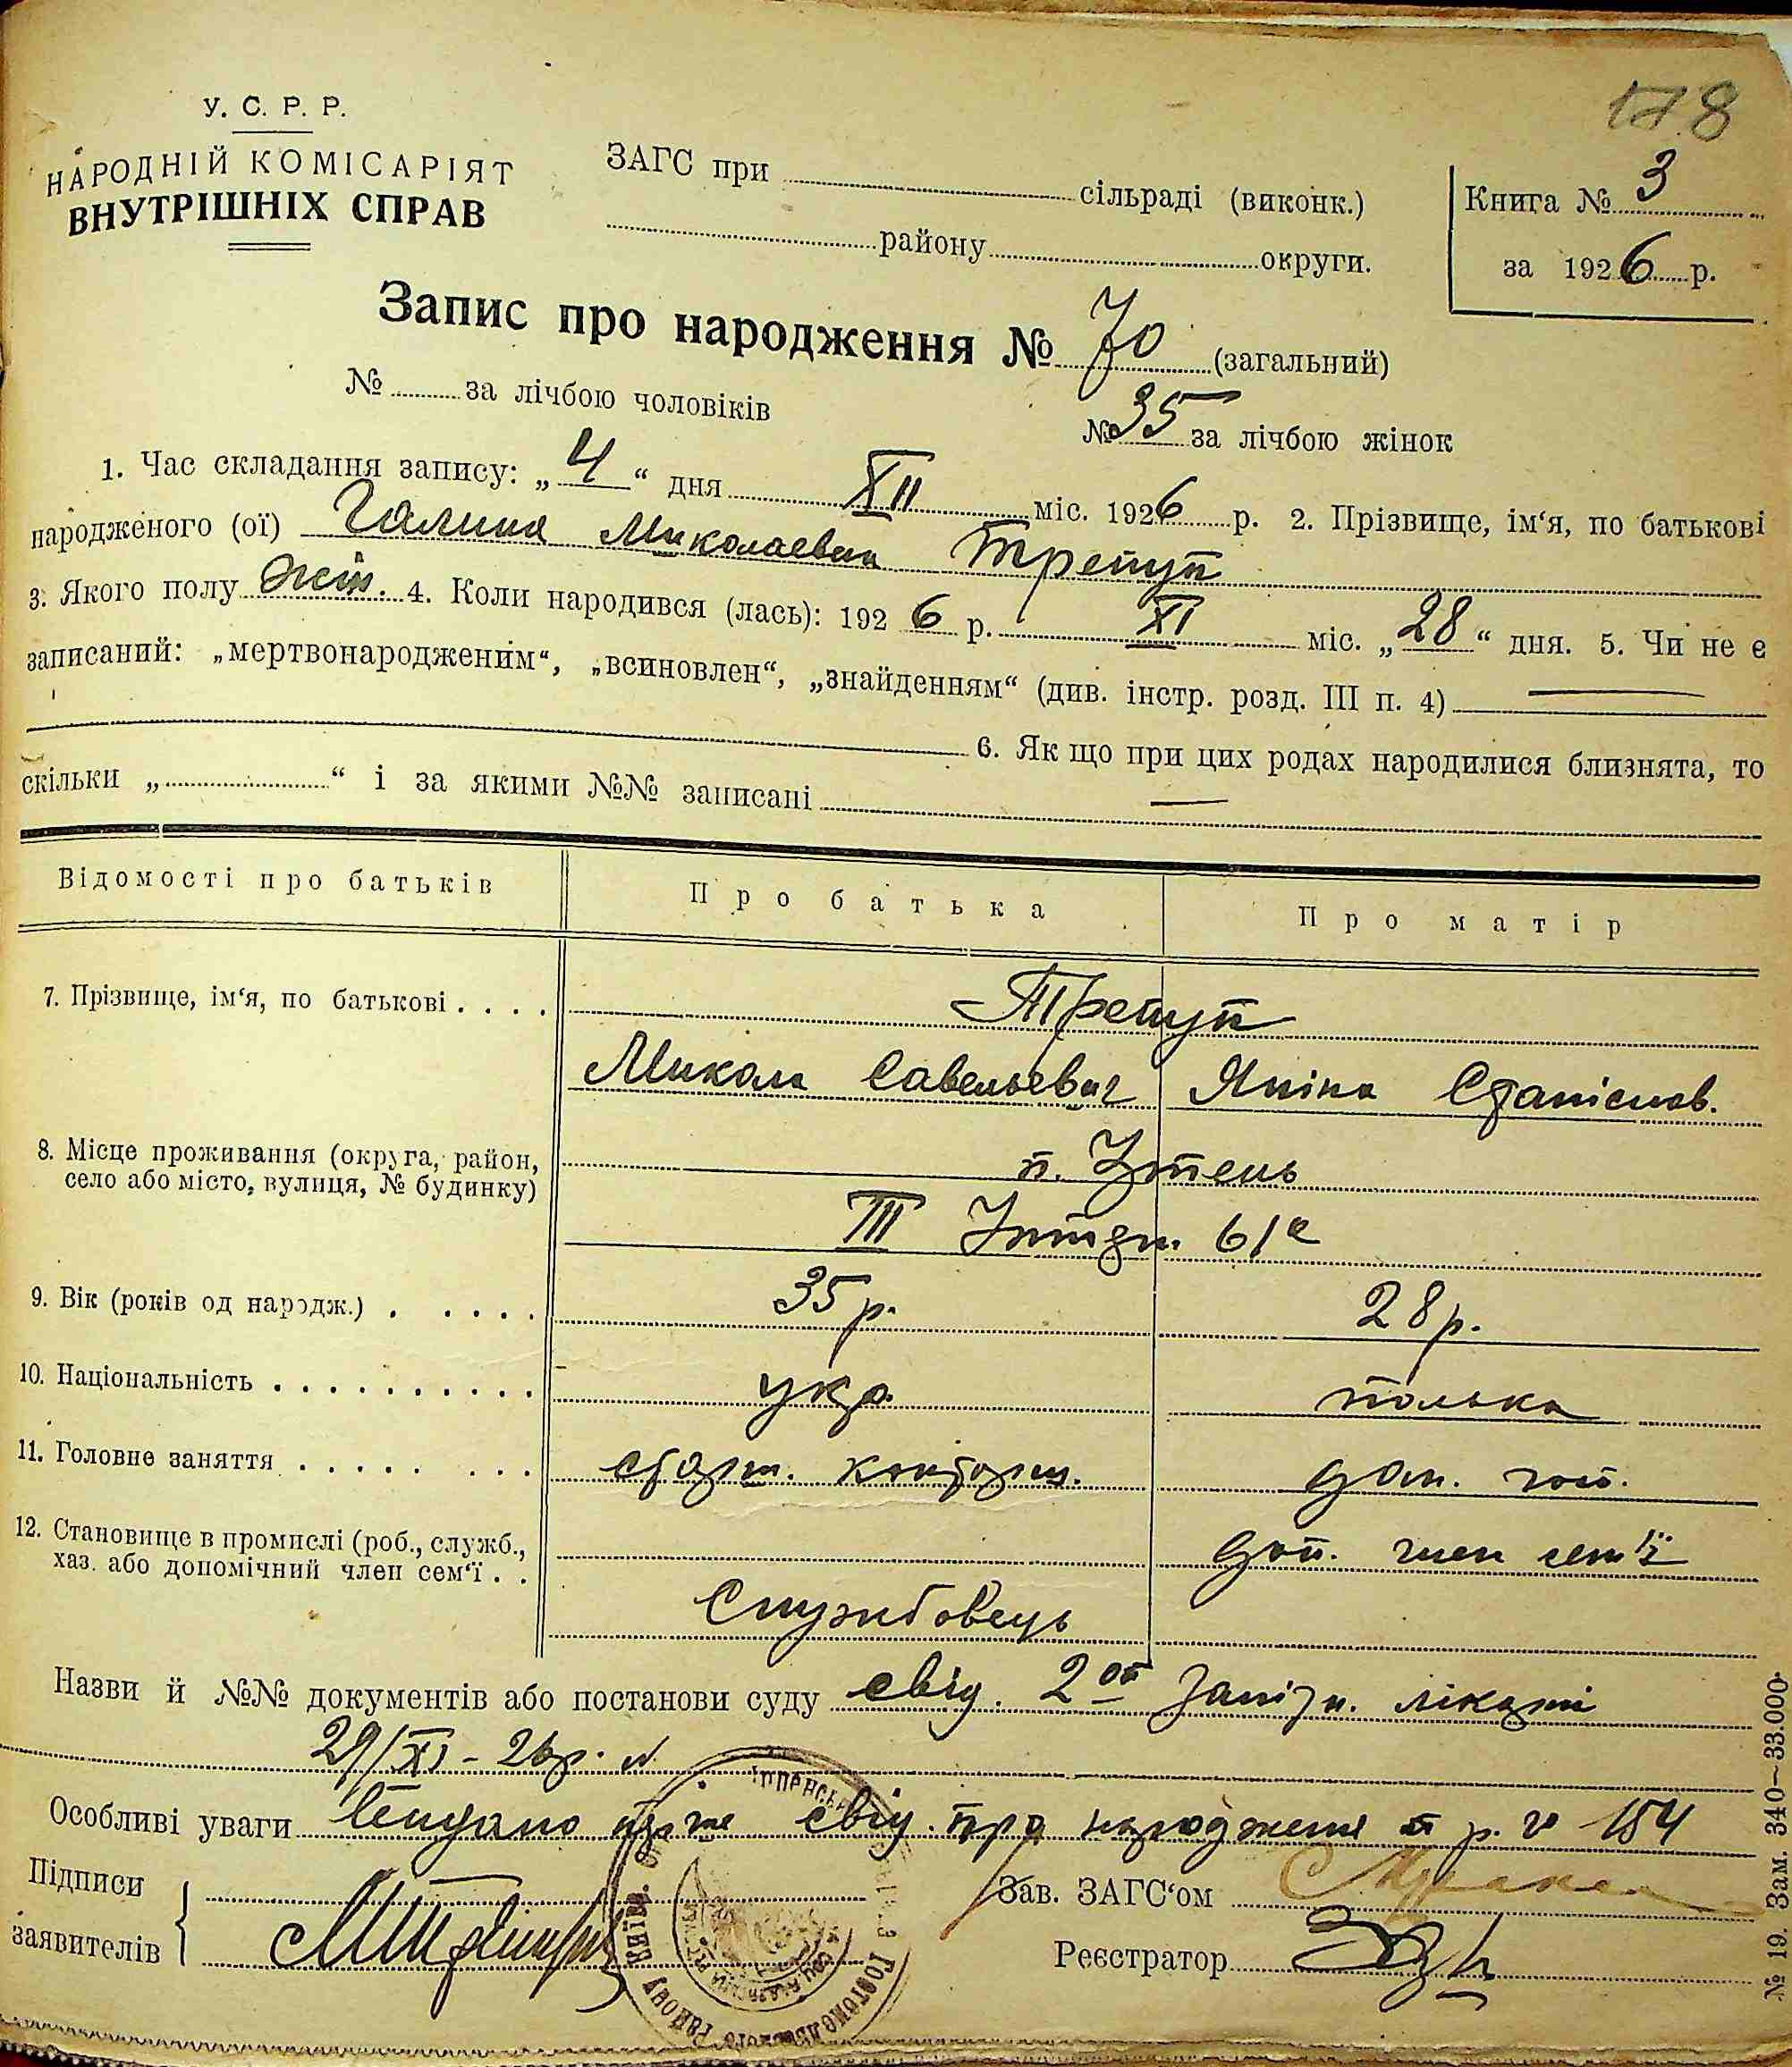 178
У. С. Р. Р.
НАРОДНІЙ КОМІСАРІЯТ
ВНУТРІШНІХ СПРАВ
ЗАГС при сільраді (виконк.)
району округи.
Книга № 3
за 1926 р.
Запис про народження № 70 (загальний)
№ за лічбою чоловіків
№ 35 за лічбою жінок
1. Час складання запису: „4“ дня XII міс. 1926 р. 2. Прізвище, ім‘я, по батькові
народженого (ої) Галина Миколаевна Трепут
3. Якого полу жін. 4. Коли народився (лась): 1926 р. XI міс. „28“ дня. 5. Чи не є
записаний: „мертвонародженим“, „всиновлен“, „знайденням“ (див. інстр. розд. III п. 4) —
6. Як що при цих родах народилися близнята, то
скільки „ “ і за якими №№ записані —
Відомості про батьків
Про батька
Про матір
7. Прізвище, ім‘я, по батькові . . . .
Трепут
Микола Савельевич Яніна Станіслав.
8. Місце проживання (округа, район,
село або місто, вулиця, № будинку)
п. Ірпень
III 61а
9. Вік (років од народж.) . . . . .
35 р. 28 р.
10. Національність . . . . . . . . . .
укр. полька
11. Головне заняття . . . . . . . .
старш. конторщ. дом. госп.
12. Становище в промислі (роб., служб.,
хаз. або допомічний член сем‘ї . .
доп. член сем'ї
Службовець
Назви й №№ документів або постанови суду свід. 2ої Залізн. лікарні
29/XI - 26 р.
Особливі уваги Видано перше свід. про народження р. № 154
Підписи
заявителів
Зав. ЗАГС‘ом
Реєстратор
Гостомельського району
№ 19. Зам. 340—33.000